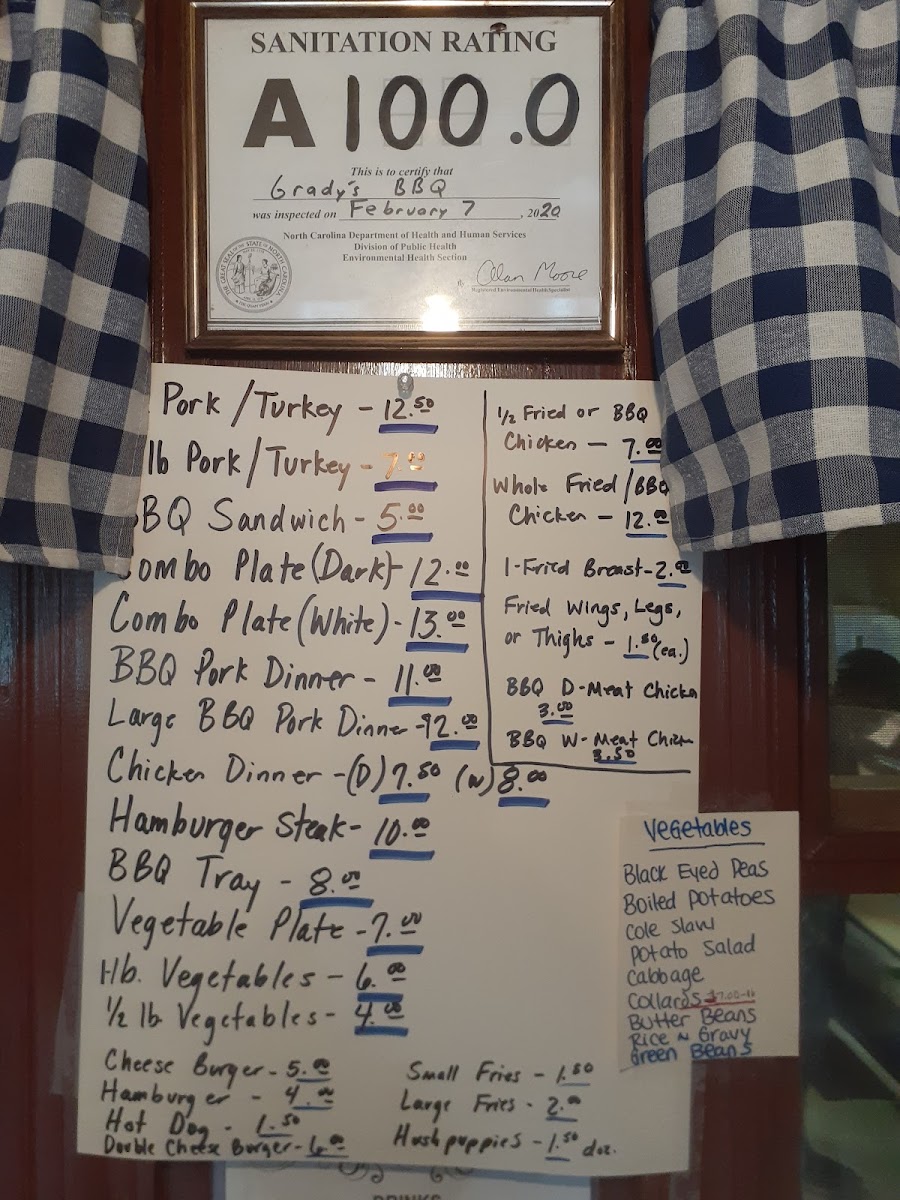 SANITATION RATING
A 100.0
This is to certify that
Grady's BBQ
was inspected on February 7, 2020
North Carolina Department of Health and Human Services
Division of Public Health
Environmental Health Section
Alan Moore
Registered Environmental Health Specialist
THE GREAT SEAL OF THE STATE OF NORTH CAROLINA
Pork/Turkey - 12.50
lb Pork/Turkey - 7.00
BBQ Sandwich - 5.00
Combo Plate (Dark) - 12.00
Combo Plate (White) - 13.00
BBQ Pork Dinner - 11.00
Large BBQ Pork Dinner - 12.00
Chicken Dinner - (D) 7.50 (W) 8.00
Hamburger Steak - 10.00
BBQ Tray - 8.00
Vegetable Plate - 7.00
1 lb. Vegetables - 6.00
1/2 lb Vegetables - 4.00
Cheese Burger - 5.00
Hamburger - 4.00
Hot Dog - 1.50
Double Cheese Burger - 6.00
Small Fries - 1.50
Large Fries - 2.00
Hushpuppies - 1.50 doz.
1/2 Fried or BBQ
Chicken - 7.00
Whole Fried/BBQ
Chicken - 12.00
1-Fried Breast - 2.00
Fried Wings, Legs,
or Thighs - 1.50 (ea.)
BBQ D-Meat Chicken
3.00
BBQ W-Meat Chicken
3.50
Vegetables
Black Eyed Peas
Boiled Potatoes
Cole Slaw
Potato Salad
Cabbage
Collards
Butter Beans
Rice N Gravy
Green Beans
DRINKS